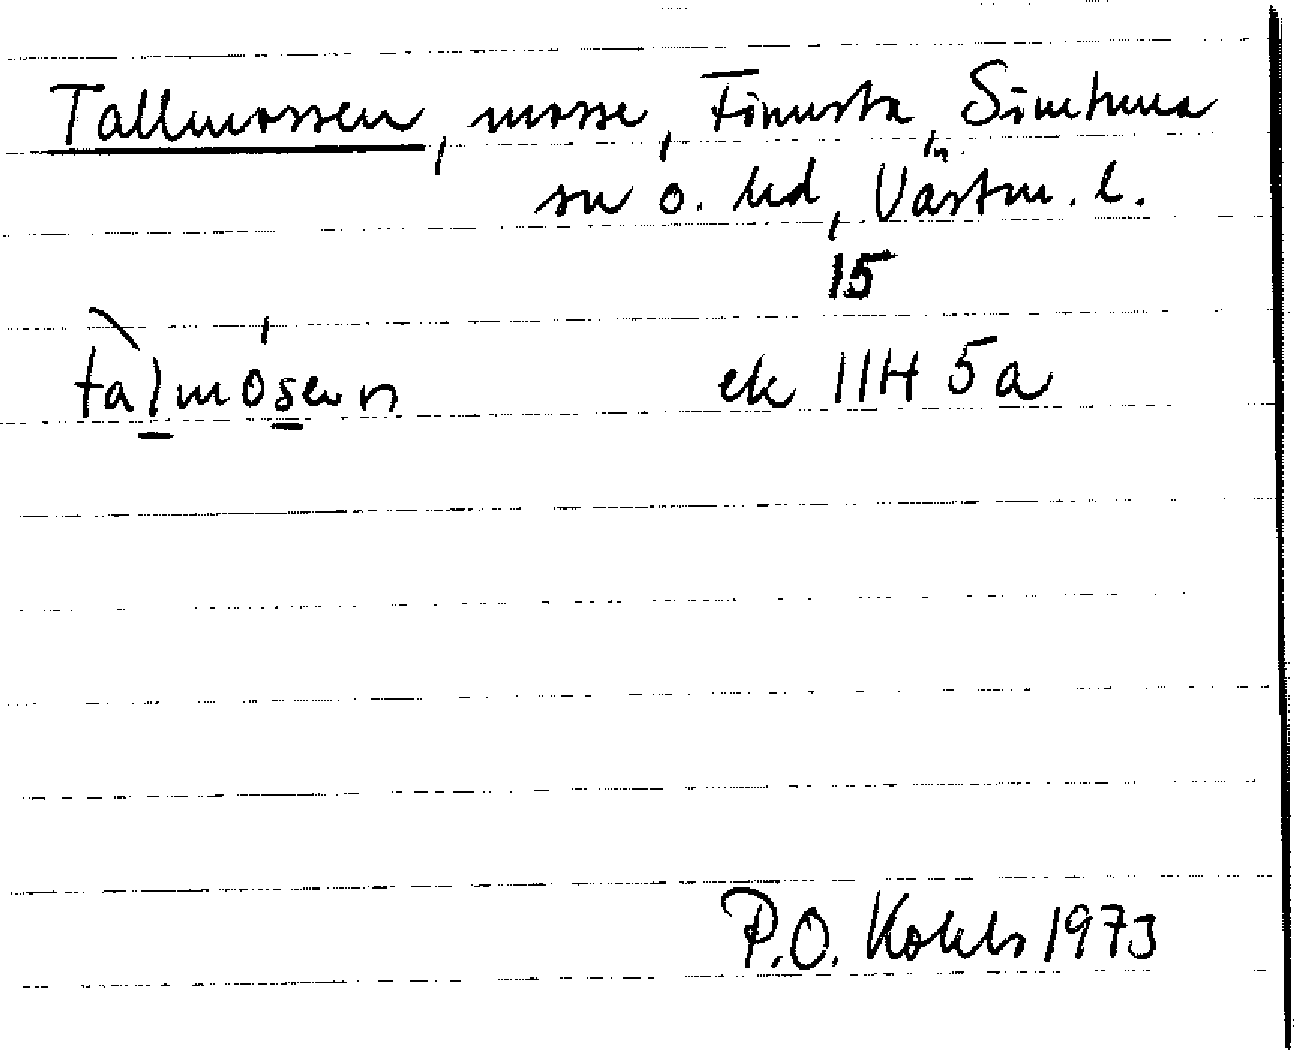 Tallmossen, mosse, Finnsta, Simtuna
sn o. hd, Västm. l.
15
tàlmósen ek 11H 5a
P.O. 1973